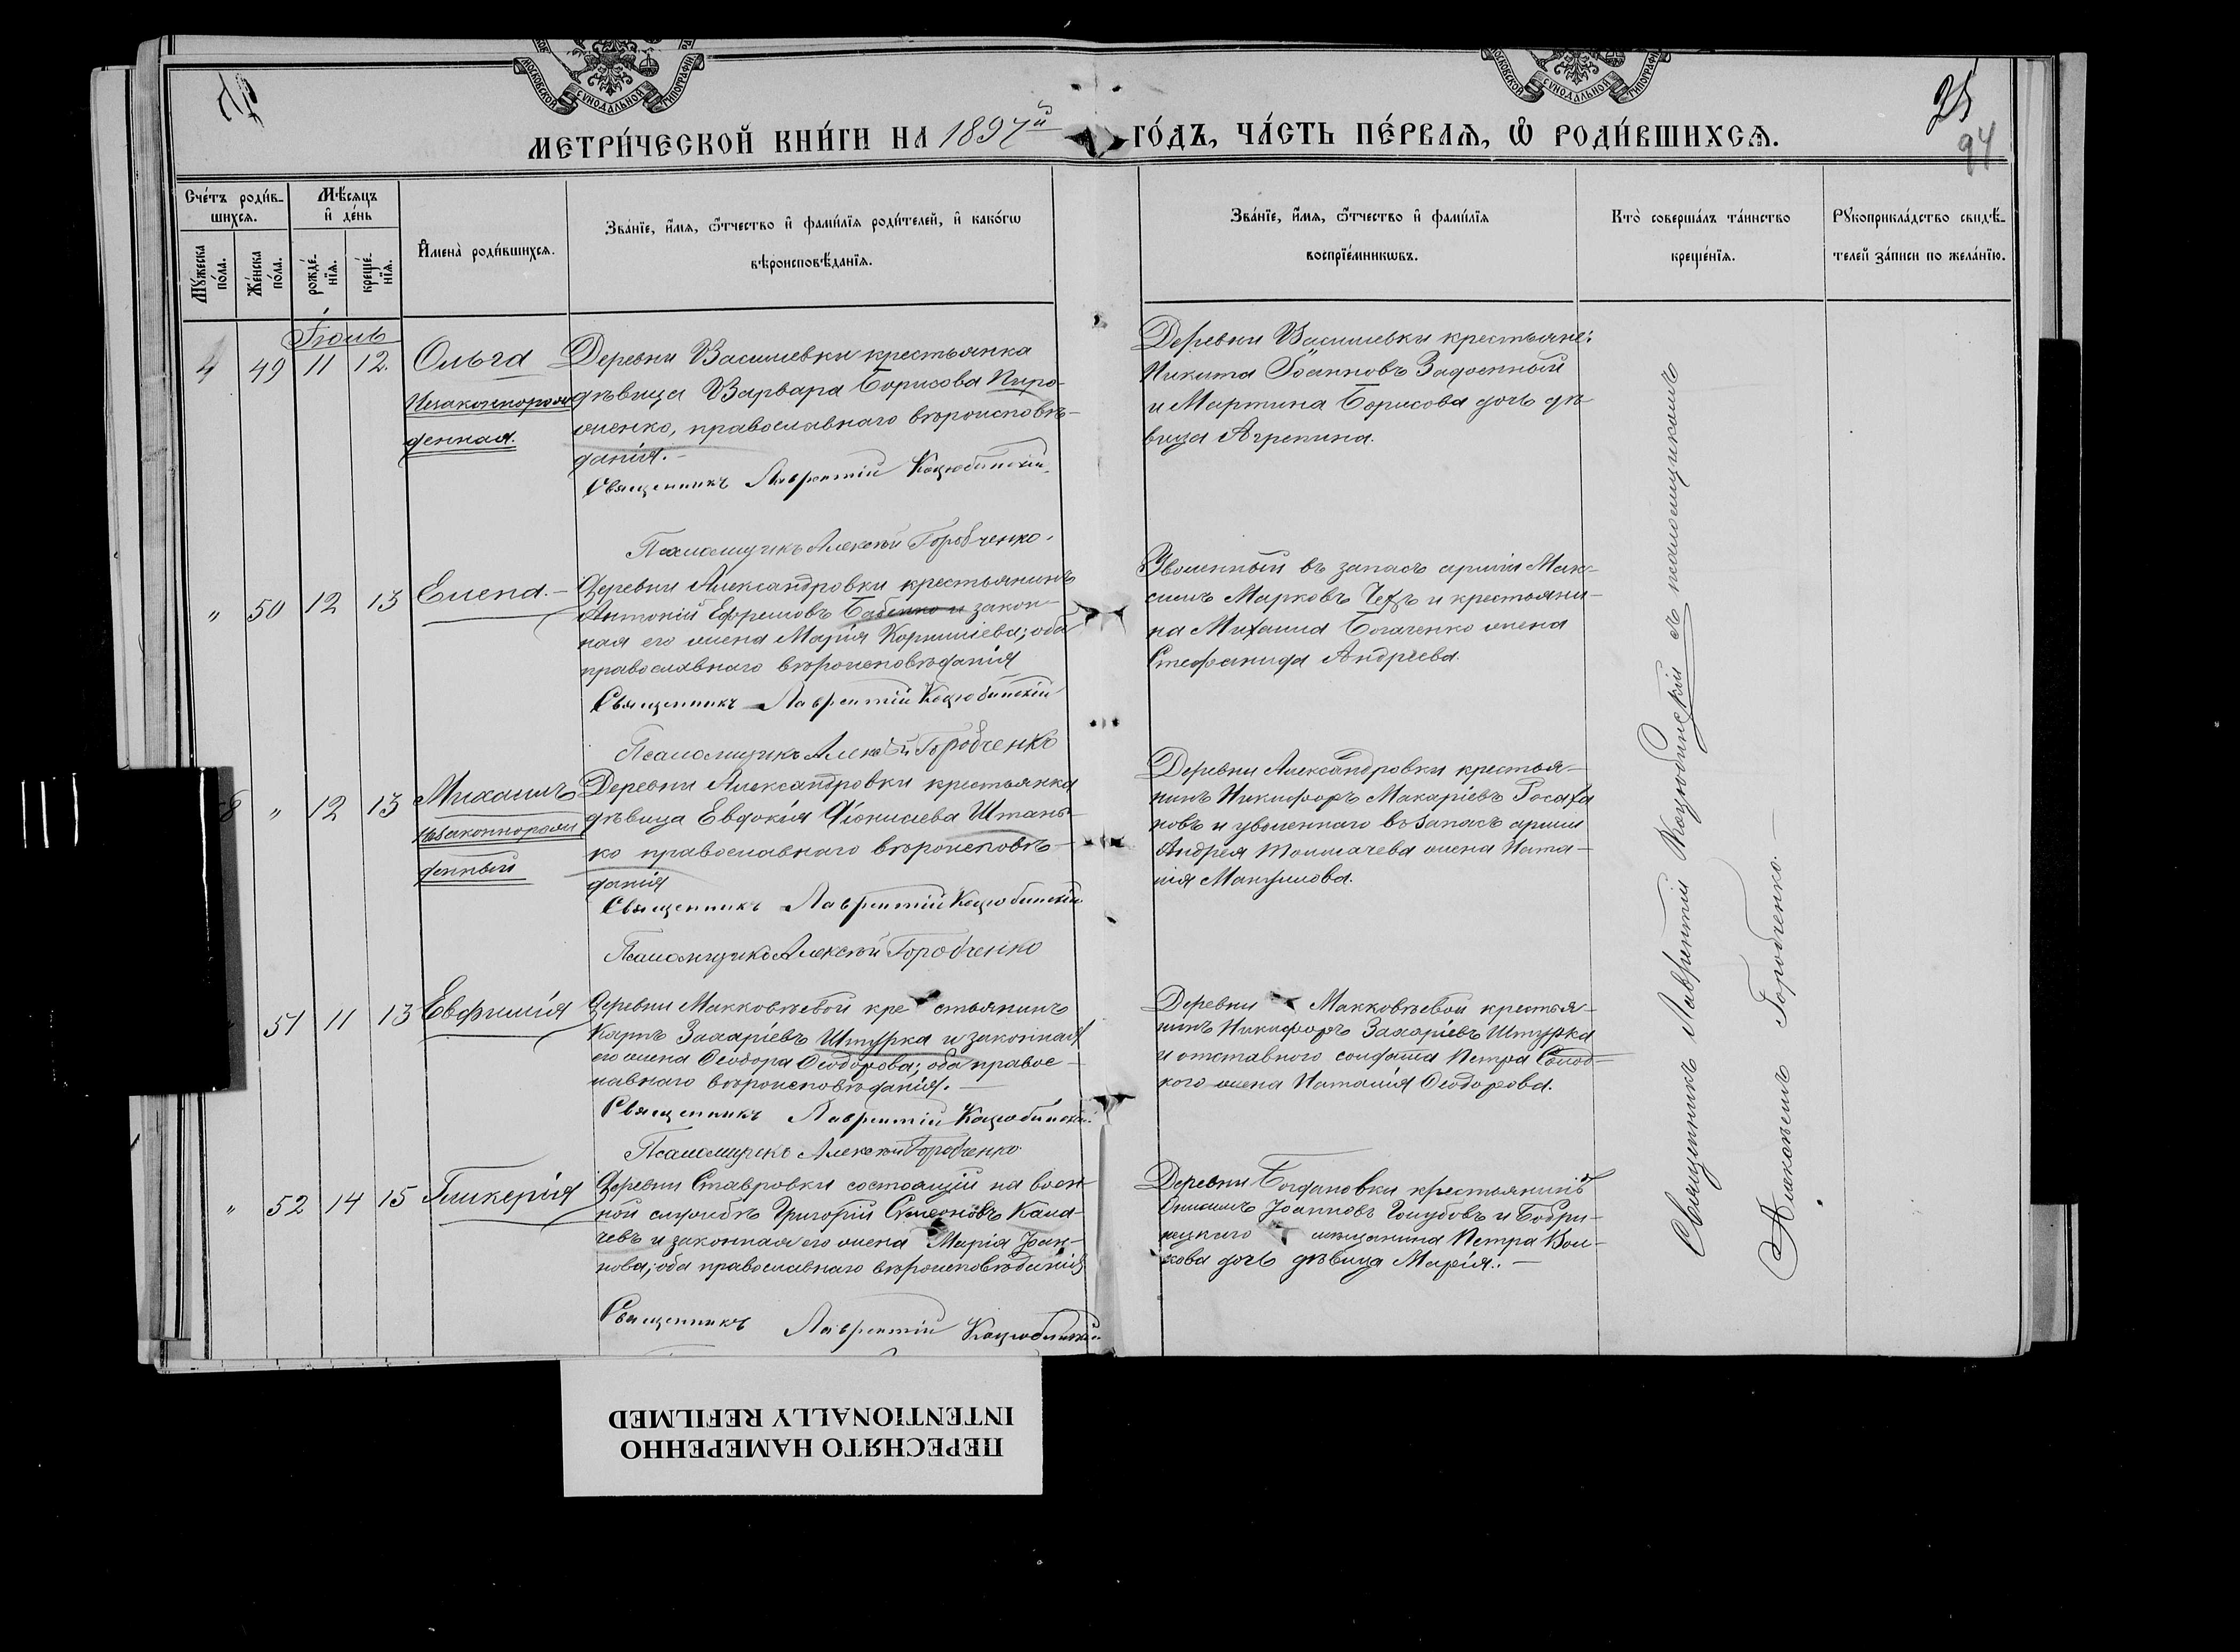 МОСКОВСКОЙ СѴНОДАЛЬНОЙ ТИПОГРАФІИ
МОСКОВСКОЙ СѴНОДАЛЬНОЙ ТИПОГРАФІИ
25
94
МЕТРИ́ЧЕСКОЙ КНИ́ГИ НА 1897й ГО́ДЪ, ЧА́СТЬ ПЕ́РВАѦ, Ѡ҆ РОДИ́ВШИХСѦ.
Сче́тъ роди́в-
шихсѧ.
Мѣ́сѧцъ
и҆ де́нь
Мꙋ́жеска
по́ла.
Же́нска
по́ла.
рожде́-
нїѧ.
креще́-
нїѧ.
И҆мена̀ роди́вшихсѧ.
Зва́нїе, и҆́мѧ, ѻ҆́тчество и҆ фамі́лїѧ роди́телей, и҆ како́гѡ
вѣроисповѣ́данїѧ.
Зва́нїе, и҆́мѧ, ѻ҆́тчество и҆ фамі́лїѧ
воспрїе́мникѡвъ.
Кто̀ соверша́лъ та́инство
креще́нїѧ.
Рꙋкоприкла́дство свидѣ́-
телей за́писи по жела́нїю.
Іюль
4 49 11 12. Ольга
Незаконнорож
денная.
Деревни Василевки крестьянка
дѣвица Варвара Борисова Пиро-
женко, православнаго вѣроисповѣ-
данія.-
Священникъ Лаврентій Коцюбинскій.
Псаломщикъ Алексѣй Горобченко.
Деревни Василевки крестьяне:
Никита Іоанновъ Задоенный
и Мартина Борисова дочь дѣ-
вица Агрепина.
" 50 12 13 Елена.-
Деревни Александровки крестьянинъ
Антоній Ефремовъ Бабенко и закон-
ная его жена Марія Корнилiева; оба
православнаго вѣроисповѣданія
Священникъ Лаврентій Коцюбинскій
Псаломщикъ Алексѣй Горобченко
Уволенный въ запасъ арміи Мак-
симъ Марковъ Чехъ и крестьяни-
на Михаила Богаченко жена
Стефанида Андрѣева.
8 " 12 13 Михаилъ
незаконнорож
денный
Деревни Александровки крестьянка
дѣвица Евдокія Діонисіева Штань-
ко православнаго вѣроисповѣ-
данія
Священникъ Лаврентій Коцюбинскій
Псаломщикъ Алексѣй Горобченко
Деревни Александровки крестья-
нинъ Никифоръ Макаріевъ Росаха
новъ и уволеннаго въ запасъ арміи
Андрея Толмачева жена Ната-
лія Мануилова.
51 11 13 Евфимія
Деревни Макковѣевой крестьянинъ
Карпъ Захаріевъ Штурка и законная
его жена Ѳеодора Ѳеодорова; оба правос-
лавнаго вѣроисповѣданія.-
Священникъ Лаврентій Коцюбинскій
Псаломщикъ Алексѣй Горобченко
Деревни Макковѣевой крестья-
нинъ Никифоръ Захаріевъ Штурка
и отставного солдата Петра Слобод-
кого жена Наталія Ѳеодорова.
" 52 14 15 Гликерія
Деревни Ставровки состоящій на воен-
ной службѣ Григорій Симеоновъ Кала-
чевъ и законная его жена Марія Іоан-
нова; оба православнаго вѣроисповѣданія
Священникъ Лаврентій Коцюбинскій
Деревни Богдановки крестьянинъ
Онисимъ Іоанновъ Голубовъ и Бобри-
нецкаго мѣщанина Петра Вол-
кова дочь дѣвица Марія.-
Священникъ Лаврентій Коцюбинскій съ псаломщикомъ
Алексѣемъ Горобченко.-
ПЕРЕСНЯТО НАМЕРЕННО
INTENTIONALLY REFILMED